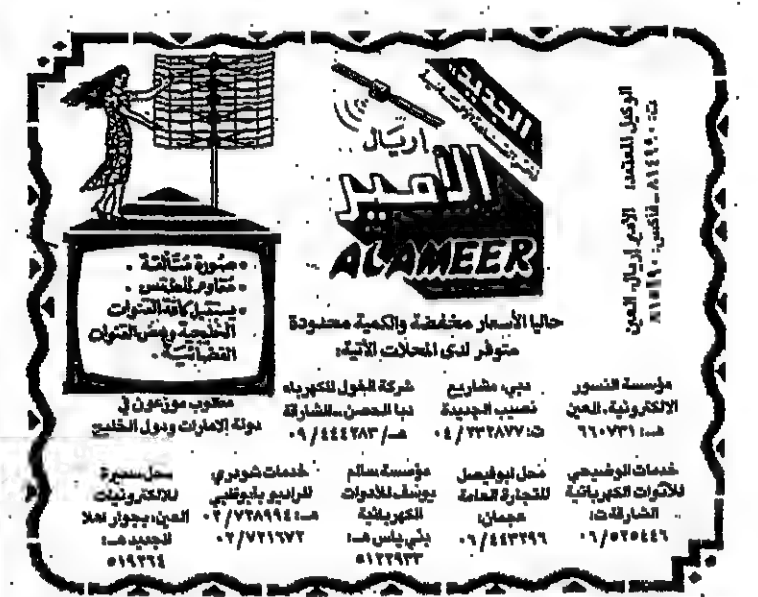 الجديد
اريال
الأمير
ALAMEER
الوكيل المعتمد: الأمير اريال، العين
ت: ٨١٤٦٩٠ - فاكس: ٨١٥٦٩٠
• صورة متألقة .
• مقاوم للطقس .
• يستقبل كافة القنوات
الخليجية وبعض القنوات
الفضائية .
حاليا الأسعار مخفضة والكمية محدودة
متوفر لدى المحلات الآتية:
مؤسسة النسور
الالكترونية، العين
هـ: ٦٦٠٧٣١
دبي، مشاريع
نصيب الجديدة
ت: ٢٣٢٨٧٧ / ٠٤
شركة الغول للكهرباء
دبا الحصن - الشارقة
هـ / ٤٤٤٢٨٣ / ٠٩
مطلوب موزعون في
دولة الامارات ودول الخليج
خدمات الوضيحي
للأدوات الكهربائية
الشارقة ت:
٥٢٥٤٤٦ / ٠٦
محل ابوفيصل
للتجارة العامة
عجمان:
٤٤٣٢٩٦ / ٠٦
مؤسسة سالم
يوسف للأدوات
الكهربائية
بني ياس هـ:
٥١٢٢٩٣٣
خدمات شودري
للراديو بابوظبي
هـ: ٧٣٨٩٩٤ / ٠٢
٧٢١٦٧٢ / ٠٢
محل سميرة
للالكترونيات
العين، بجوار اهلا
الجديد هـ:
٥١٩٢٦٤